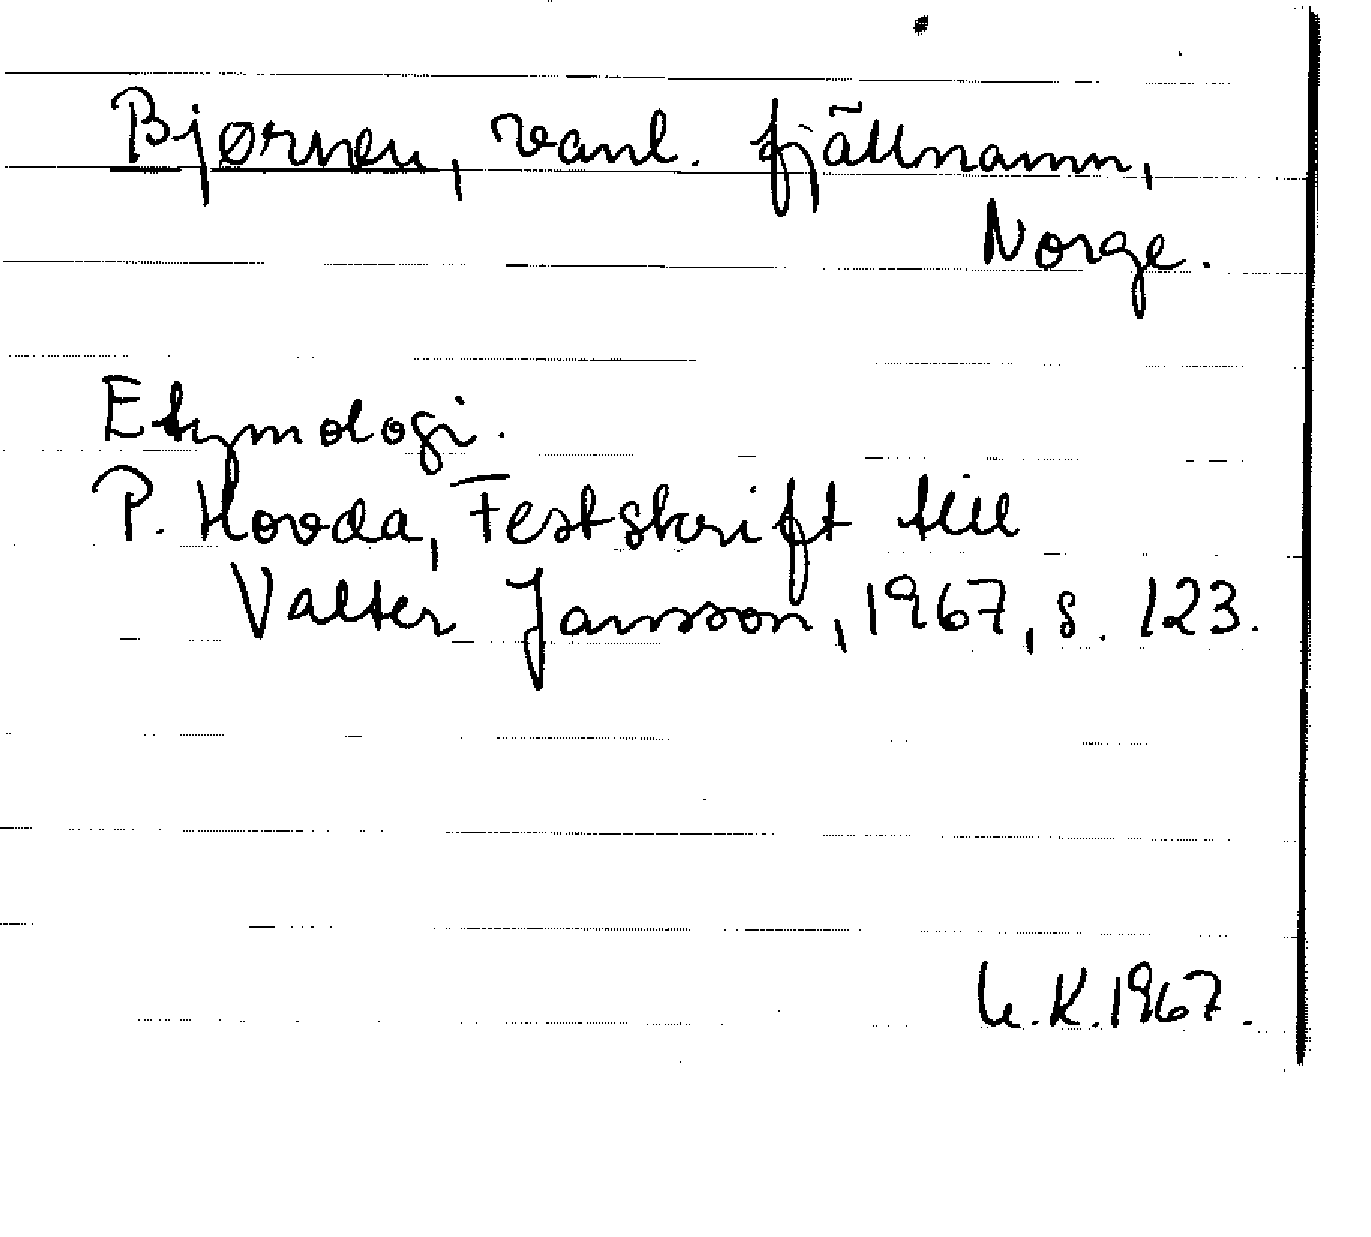 Bjørnen, vanl. fjällnamn,
Norge.
Etymologi.
P. Hovda, Festskrift till
Valter Jansson, 1967, s. 123.
U.K.1967.